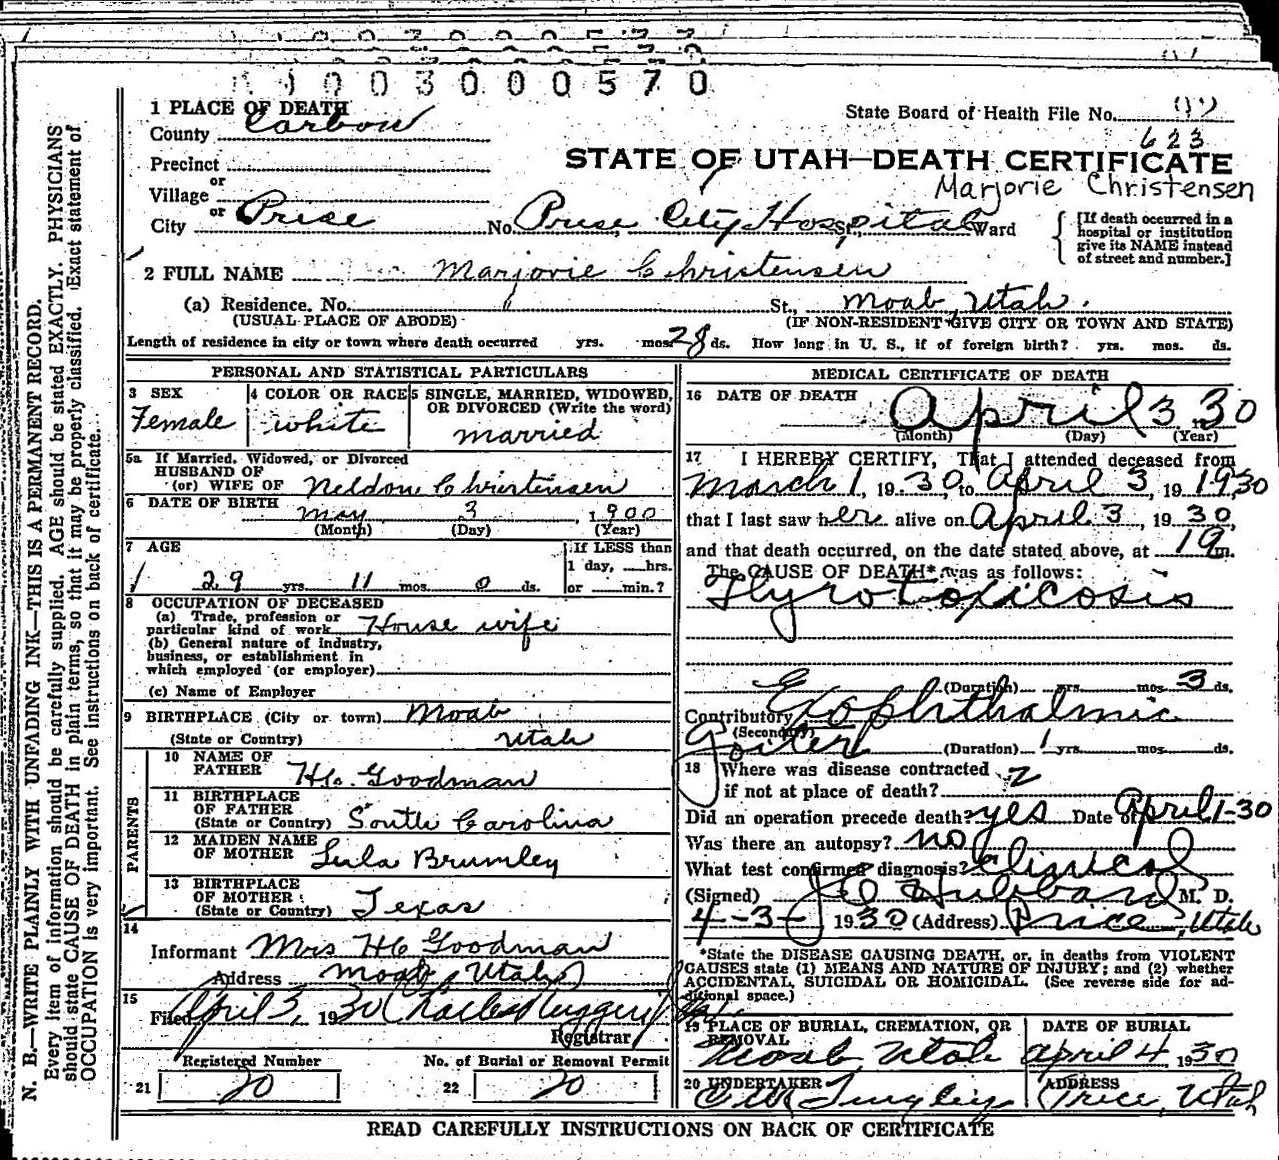 1003000570
1 PLACE OF DEATH
State Board of Health File No.
County Carbon
623
Precinct
STATE OF UTAH—DEATH CERTIFICATE
or
Village
Marjorie Christensen
or
City Price No. Price City Hospital St., Ward
[If death occurred in a hospital or institution give its NAME instead of street and number.]
2 FULL NAME Marjorie Christensen
(a) Residence. No. St., Moab, Utah.
(USUAL PLACE OF ABODE) (IF NON-RESIDENT GIVE CITY OR TOWN AND STATE)
Length of residence in city or town where death occurred yrs. mos. 28 ds. How long in U. S., if of foreign birth? yrs. mos. ds.
PERSONAL AND STATISTICAL PARTICULARS
3 SEX 4 COLOR OR RACE 5 SINGLE, MARRIED, WIDOWED, OR DIVORCED (Write the word)
Female white married
5a If Married, Widowed, or Divorced
HUSBAND OF
(or) WIFE OF Neldon Christensen
6 DATE OF BIRTH May 3, 1900
(Month) (Day) (Year)
7 AGE If LESS than
1 day, hrs.
29 yrs. 11 mos. 0 ds. or min.?
8 OCCUPATION OF DECEASED
(a) Trade, profession or
particular kind of work House wife
(b) General nature of industry,
business, or establishment in
which employed (or employer)
(c) Name of Employer
9 BIRTHPLACE (City or town) Moab
(State or Country) Utah
PARENTS
10 NAME OF
FATHER HC Goodman
11 BIRTHPLACE
OF FATHER
(State or Country) South Carolina
12 MAIDEN NAME
OF MOTHER Lula Brumley
13 BIRTHPLACE
OF MOTHER
(State or Country) Texas
14
Informant Mrs HC Goodman
Address Moab, Utah
15
Filed April 3, 1930 Charles Ruggeri
Registrar
Registered Number No. of Burial or Removal Permit
21 20 22 20
MEDICAL CERTIFICATE OF DEATH
16 DATE OF DEATH April 3 30
(Month) (Day) (Year)
17 I HEREBY CERTIFY, That I attended deceased from
March 1, 19 30, to April 3, 19 1930
that I last saw her alive on April 3, 19 30,
and that death occurred, on the date stated above, at m.
The CAUSE OF DEATH* was as follows:
Thyrotoxicosis
(Duration) yrs. mos. 3 ds.
Contributory Exophthalmic
(Secondary)
Goiter (Duration) 1 yrs. mos. ds.
18 Where was disease contracted
if not at place of death?
Did an operation precede death? yes Date of April 1-30
Was there an autopsy? no
What test confirmed diagnosis? Clinical
(Signed) Hubbard M. D.
4-3- 1930 (Address) Price, Utah
*State the DISEASE CAUSING DEATH, or, in deaths from VIOLENT
CAUSES state (1) MEANS AND NATURE OF INJURY; and (2) whether
ACCIDENTAL, SUICIDAL OR HOMICIDAL. (See reverse side for ad-
ditional space.)
19 PLACE OF BURIAL, CREMATION, OR REMOVAL DATE OF BURIAL
Moab, Utah April 4 1930
20 UNDERTAKER ADDRESS
Price, Utah
READ CAREFULLY INSTRUCTIONS ON BACK OF CERTIFICATE
N. B.—WRITE PLAINLY WITH UNFADING INK—THIS IS A PERMANENT RECORD.
Every item of information should be carefully supplied. AGE should be stated EXACTLY. PHYSICIANS
should state CAUSE OF DEATH in plain terms, so that it may be properly classified. Exact statement of
OCCUPATION is very important. See instructions on back of certificate.